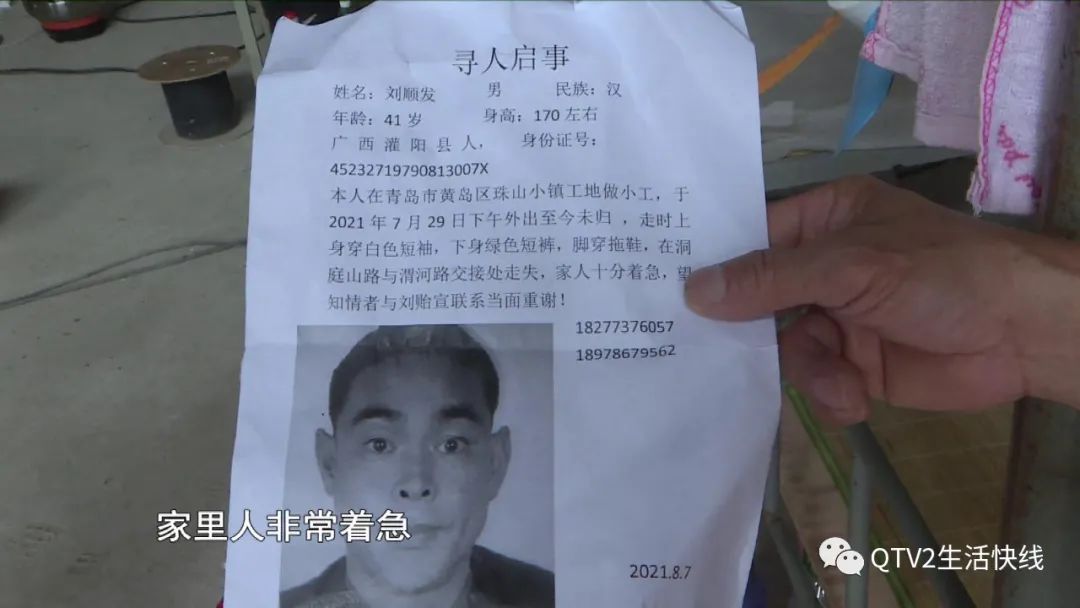 寻人启事
姓名：刘顺发 男 民族：汉
年龄：41 岁 身高：170 左右
广西灌阳县人，身份证号：
45232719790813007X
本人在青岛市黄岛区珠山小镇工地做小工，于
2021 年 7 月 29 日下午外出至今未归 ，走时上
身穿白色短袖，下身绿色短裤，脚穿拖鞋，在洞
庭山路与渭河路交接处走失，家人十分着急，望
知情者与刘贻宣联系当面重谢！
18277376057
18978679562
2021.8.7
家里人非常着急
QTV2生活快线